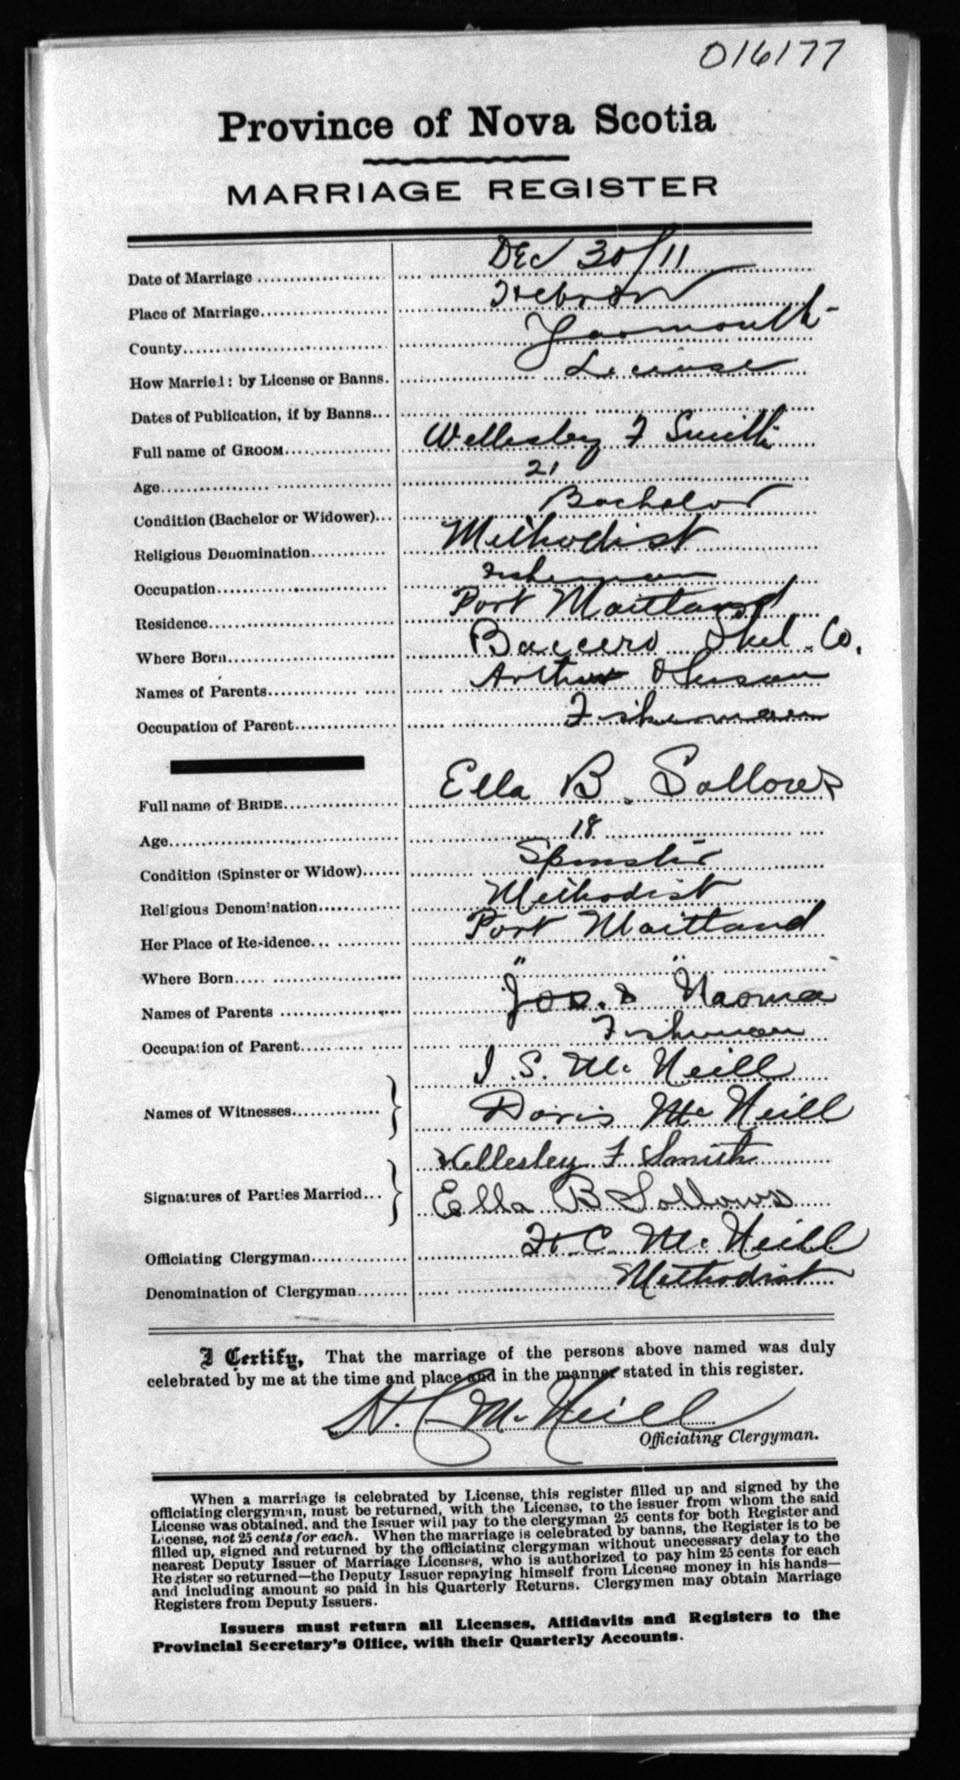 016177
Province of Nova Scotia
MARRIAGE REGISTER
Date of Marriage Dec 30/11
Place of Marriage Hebron
County Yarmouth
How Married: by License or Banns. License
Dates of Publication, if by Banns
Full name of GROOM Wellesley F Smith
Age 21
Condition (Bachelor or Widower) Bachelor
Religious Denomination Methodist
Occupation Fisherman
Residence Port Maitland
Where Born Baccero Shel. Co.
Names of Parents Arthur & Susan
Occupation of Parent Fisherman
Full name of BRIDE Ella B. Sollows
Age 18
Condition (Spinster or Widow) Spinster
Religious Denomination Methodist
Her Place of Residence Port Maitland
Where Born " "
Names of Parents Jos. & Naoma
Occupation of Parent Fisherman
Names of Witnesses I. S. McNeill
Doris McNeill
Signatures of Parties Married Wellesley F Smith
Ella B Sollows
Officiating Clergyman H C McNeill
Denomination of Clergyman Methodist
I Certify, That the marriage of the persons above named was duly
celebrated by me at the time and place and in the manner stated in this register.
H. C. McNeill
Officiating Clergyman.
When a marriage is celebrated by License, this register filled up and signed by the
officiating clergyman, must be returned, with the License, to the issuer from whom the said
License was obtained, and the Issuer will pay to the clergyman 25 cents for both Register and
License, not 25 cents for each. When the marriage is celebrated by banns, the Register is to be
filled up, signed and returned by the officiating clergyman without unnecessary delay to the
nearest Deputy Issuer of Marriage Licenses, who is authorized to pay him 25 cents for each
Register so returned—the Deputy Issuer repaying himself from License money in his hands—
and including amount so paid in his Quarterly Returns. Clergymen may obtain Marriage
Registers from Deputy Issuers.
Issuers must return all Licenses, Affidavits and Registers to the
Provincial Secretary's Office, with their Quarterly Accounts.